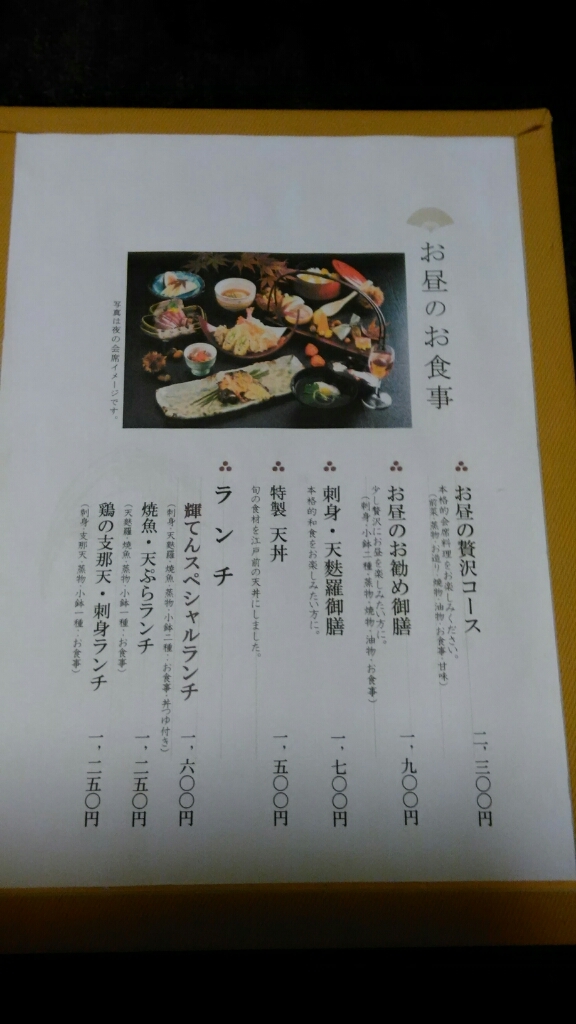 お昼のお食事
写真は夜の会席イメージです。
お昼の贅沢コース
本格的会席料理をお楽しみください。
(前菜・蒸物・お造り・焼物・油物・お食事・甘味)
二、三〇〇円
お昼のお勧め御膳
少し贅沢にお昼を楽しみたい方に。
(刺身・小鉢二種・蒸物・焼物・油物・お食事)
一、九〇〇円
刺身・天麩羅御膳
本格的和食をお楽しみたい方に。
一、七〇〇円
特製 天丼
旬の食材を江戸前の天丼にしました。
一、五〇〇円
ランチ
輝てんスペシャルランチ
(刺身・天麩羅・焼魚・蒸物・小鉢二種・お食事・丼つゆ付き)
一、六〇〇円
焼魚・天ぷらランチ
(天麩羅・焼魚・蒸物・小鉢一種・お食事)
一、二五〇円
鶏の支那天・刺身ランチ
(刺身・支那天・蒸物・小鉢一種・お食事)
一、二五〇円